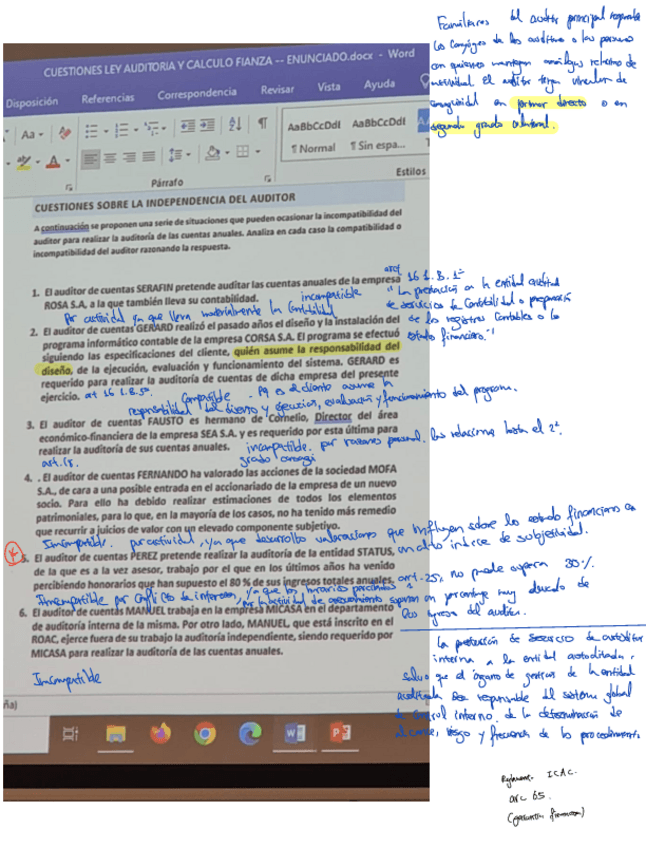 Familiares del auditor principal
los conyuges de los auditores o las personas
con quienes mantengan análogas relaciones de
afectividad el auditor tengan vínculos de
consanguinidad en primer directo o en
segundo grado colateral.
CUESTIONES LEY AUDITORIA Y CALCULO FIANZA -- ENUNCIADO.docx - Word
Disposición Referencias Correspondencia Revisar Vista Ayuda
Aa
AaBbCcDdI AaBbCcDdI
¶ Normal ¶ Sin espa...
Párrafo
Estilos
CUESTIONES SOBRE LA INDEPENDENCIA DEL AUDITOR
A continuación se proponen una serie de situaciones que pueden ocasionar la incompatibilidad del
auditor para realizar la auditoría de las cuentas anuales. Analiza en cada caso la compatibilidad o
incompatibilidad del auditor razonando la respuesta.
1. El auditor de cuentas SERAFIN pretende auditar las cuentas anuales de la empresa
ROSA S.A, a la que también lleva su contabilidad.
incompatible
art 16 1.B.1º
"La prestación a la entidad auditada
de servicios de Contabilidad o preparación
de los registros Contables o los
estados financieros."
Por actividad ya que lleva materialmente la Contabilidad
2. El auditor de cuentas GERARD realizó el pasado años el diseño y la instalación del
programa informático contable de la empresa CORSA S.A. El programa se efectuó
siguiendo las especificaciones del cliente, quién asume la responsabilidad del
diseño, de la ejecución, evaluación y funcionamiento del sistema. GERARD es
requerido para realizar la auditoría de cuentas de dicha empresa del presente
ejercicio.
art 16 1.B.5º
Compatible. Pq es el cliente asume la
responsabilidad del diseño y ejecucion, evaluación y funcionamiento del programa.
3. El auditor de cuentas FAUSTO es hermano de Cornelio, Director del área
económico-financiera de la empresa SEA S.A. y es requerido por esta última para
realizar la auditoría de sus cuentas anuales.
incompatible. por razones personal. las relaciones hasta el 2º
grado
4. . El auditor de cuentas FERNANDO ha valorado las acciones de la sociedad MOFA
S.A., de cara a una posible entrada en el accionariado de la empresa de un nuevo
socio. Para ello ha debido realizar estimaciones de todos los elementos
patrimoniales, para lo que, en la mayoría de los casos, no ha tenido más remedio
que recurrir a juicios de valor con un elevado componente subjetivo.
Incompatible. por actividad, ya que desarrolla valoraciones que influyen sobre los estado financiero con
un alto indice de subjetividad.
5. El auditor de cuentas PEREZ pretende realizar la auditoría de la entidad STATUS,
de la que es a la vez asesor, trabajo por el que en los últimos años ha venido
percibiendo honorarios que han supuesto el 80 % de sus ingresos totales anuales.
art-25% no puede superar 30%
Incompatible por conflicto de intereses, ya que los honorarios percibidos
por la actividad de asesoramiento suponen un porcentaje muy elevado de
los ingresos del auditor.
6. El auditor de cuentas MANUEL trabaja en la empresa MICASA en el departamento
de auditoría interna de la misma. Por otro lado, MANUEL, que está inscrito en el
ROAC, ejerce fuera de su trabajo la auditoría independiente, siendo requerido por
MICASA para realizar la auditoría de las cuentas anuales.
Incompatible
La prestación de servicio de auditor
interna a la entidad auditada,
salvo que el órgano de gestion de la entidad
auditada sea responsable del sistema global
de control interno, de la determinación de
alcance, riesgo y frecuencia de los procedimientos
ña)
Reglamento ICAC.
art 65.